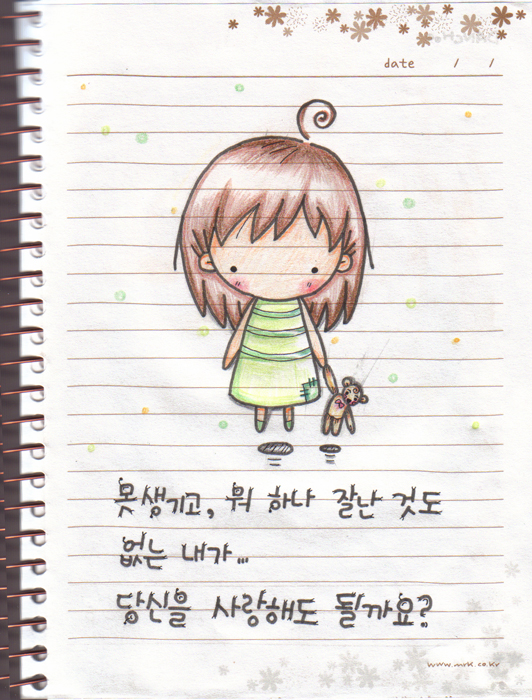 date / /
못생기고, 뭐 하나 잘난 것도
없는 내가...
당신을 사랑해도 될까요?
www.mrk.co.kr